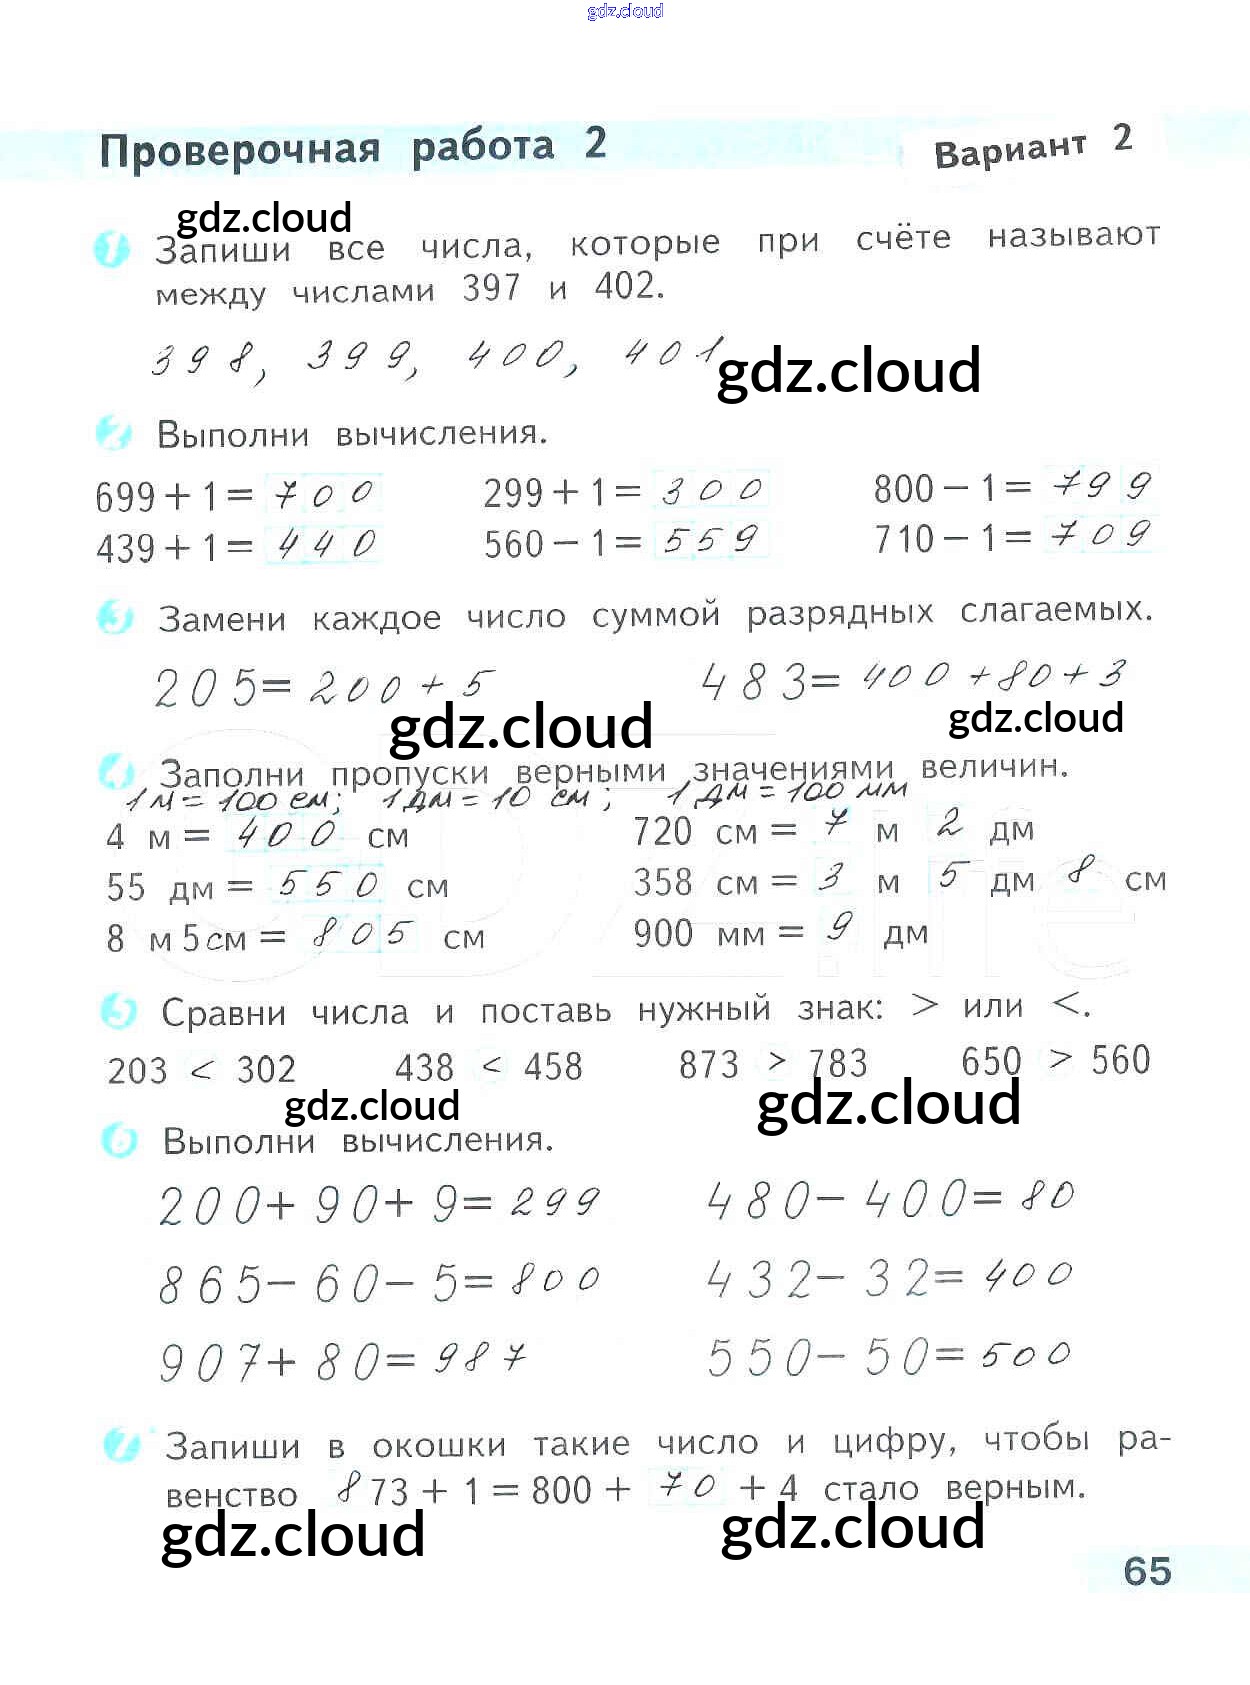 gdz.cloud
Проверочная работа 2
Вариант 2
gdz.cloud
1 Запиши все числа, которые при счёте называют
между числами 397 и 402.
398, 399, 400, 401
gdz.cloud
2 Выполни вычисления.
699 + 1 = 700 299 + 1 = 300 800 − 1 = 799
439 + 1 = 440 560 − 1 = 559 710 − 1 = 709
3 Замени каждое число суммой разрядных слагаемых.
205 = 200 + 5 483 = 400 + 80 + 3
gdz.cloud gdz.cloud
4 Заполни пропуски верными значениями величин.
1 м = 100 см; 1 дм = 10 см; 1 дм = 100 мм
4 м = 400 см 720 см = 7 м 2 дм
55 дм = 550 см 358 см = 3 м 5 дм 8 см
8 м 5 см = 805 см 900 мм = 9 дм
GDZ.life
5 Сравни числа и поставь нужный знак: > или <.
203 < 302 438 < 458 873 > 783 650 > 560
gdz.cloud gdz.cloud
6 Выполни вычисления.
200 + 90 + 9 = 299 480 − 400 = 80
865 − 60 − 5 = 800 432 − 32 = 400
907 + 80 = 987 550 − 50 = 500
7 Запиши в окошки такие число и цифру, чтобы ра-
венство 873 + 1 = 800 + 70 + 4 стало верным.
gdz.cloud gdz.cloud
65